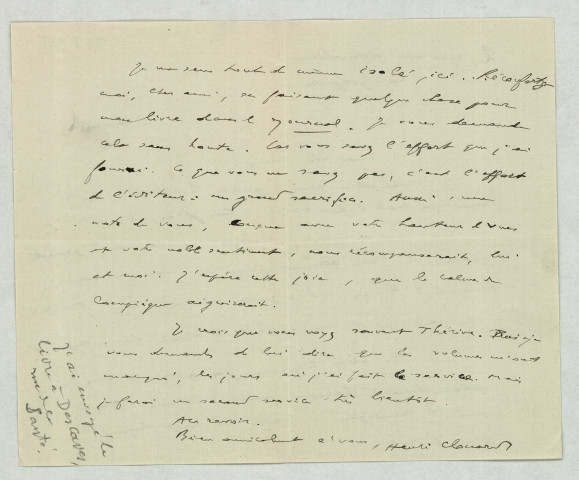 Je me sens tout de même isolé, ici. Réconfortez
moi, cher ami, en faisant quelque chose pour
mon livre dans le Journal. Je vous demande
cela sans honte. Car vous savez l'effort que j'ai
fourni. Ce que vous ne savez pas, c'est l'effort
de l'éditeur : un grand sacrifice. Aussi, une
note de vous, conçue avec votre hauteur de vues
et votre noble sentiment, nous récompenserait, lui
et moi. J'espère cette joie, que le calme de
Compiègne aiguiserait.
Je crois que vous voyez souvent Thérive. Puis-je
vous demander de lui dire que les volumes m'ont
manqué, les jours où j'ai fait le service. Mais
je ferai un second service très bientôt.
Au revoir.
Bien amicalement à vous, Henri Clouard
J'ai envoyé le
livre à Descaves,
rue de la
Santé.